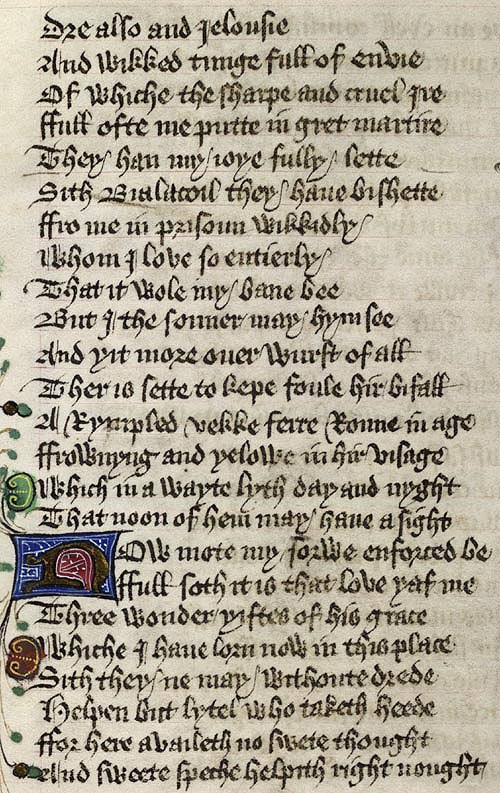 Dre also and Jelousie
And wikked tunge full of envie
Of whiche the sharpe and cruel Ire
ffull ofte me putte in gret martire
They han my ioye fully lette
Sith Bialacoil they haue bishette
ffro me in prisoun wikkidly
Whom I love so entierly
That it wole my bane bee
But I the sonner may hym see
And yit more ouer wurst of all
Ther is sette to kepe foule hir bifall
A Rympled vekke ferre Ronne in age
ffrownyng and yelowe in hir visage
Which in a wayte lyth day and nyght
That noon of hem may haue a sight
Now mote my sorwe enforced be
ffull soth it is that love yaf me
Three wonder yiftes of his grace
Whiche I haue lorn now in this place
Sith they ne may withoute drede
Helpen but lytel who taketh heede
ffor here availeth no swete thought
And sweete speche helpith right nought